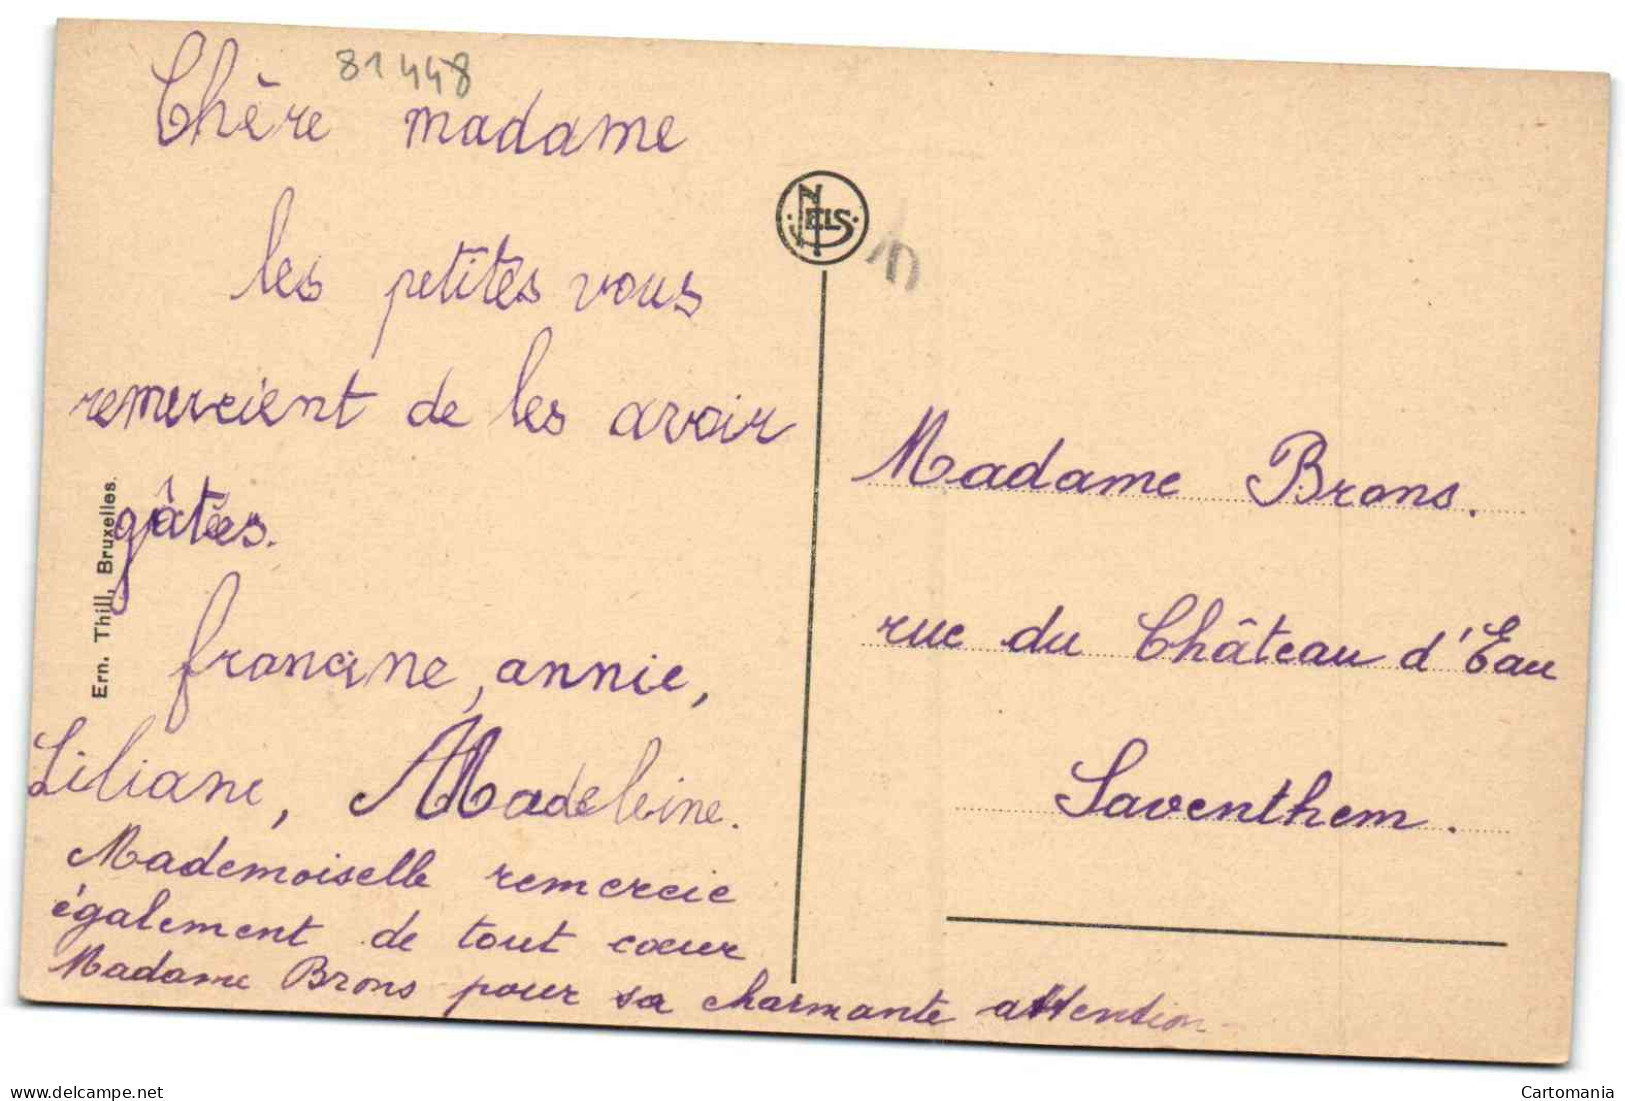 81448
Chère madame
les petites vous
remercient de les avoir
gâtées.
francine, annie,
Liliane, Madeleine.
Mademoiselle remercie
également de tout cœur
Madame Brons pour sa charmante attention
Ern. Thill, Bruxelles.
NELS
Madame Brons.
rue du Château d'Eau
Saventhem.
delcampe.net
Cartomania